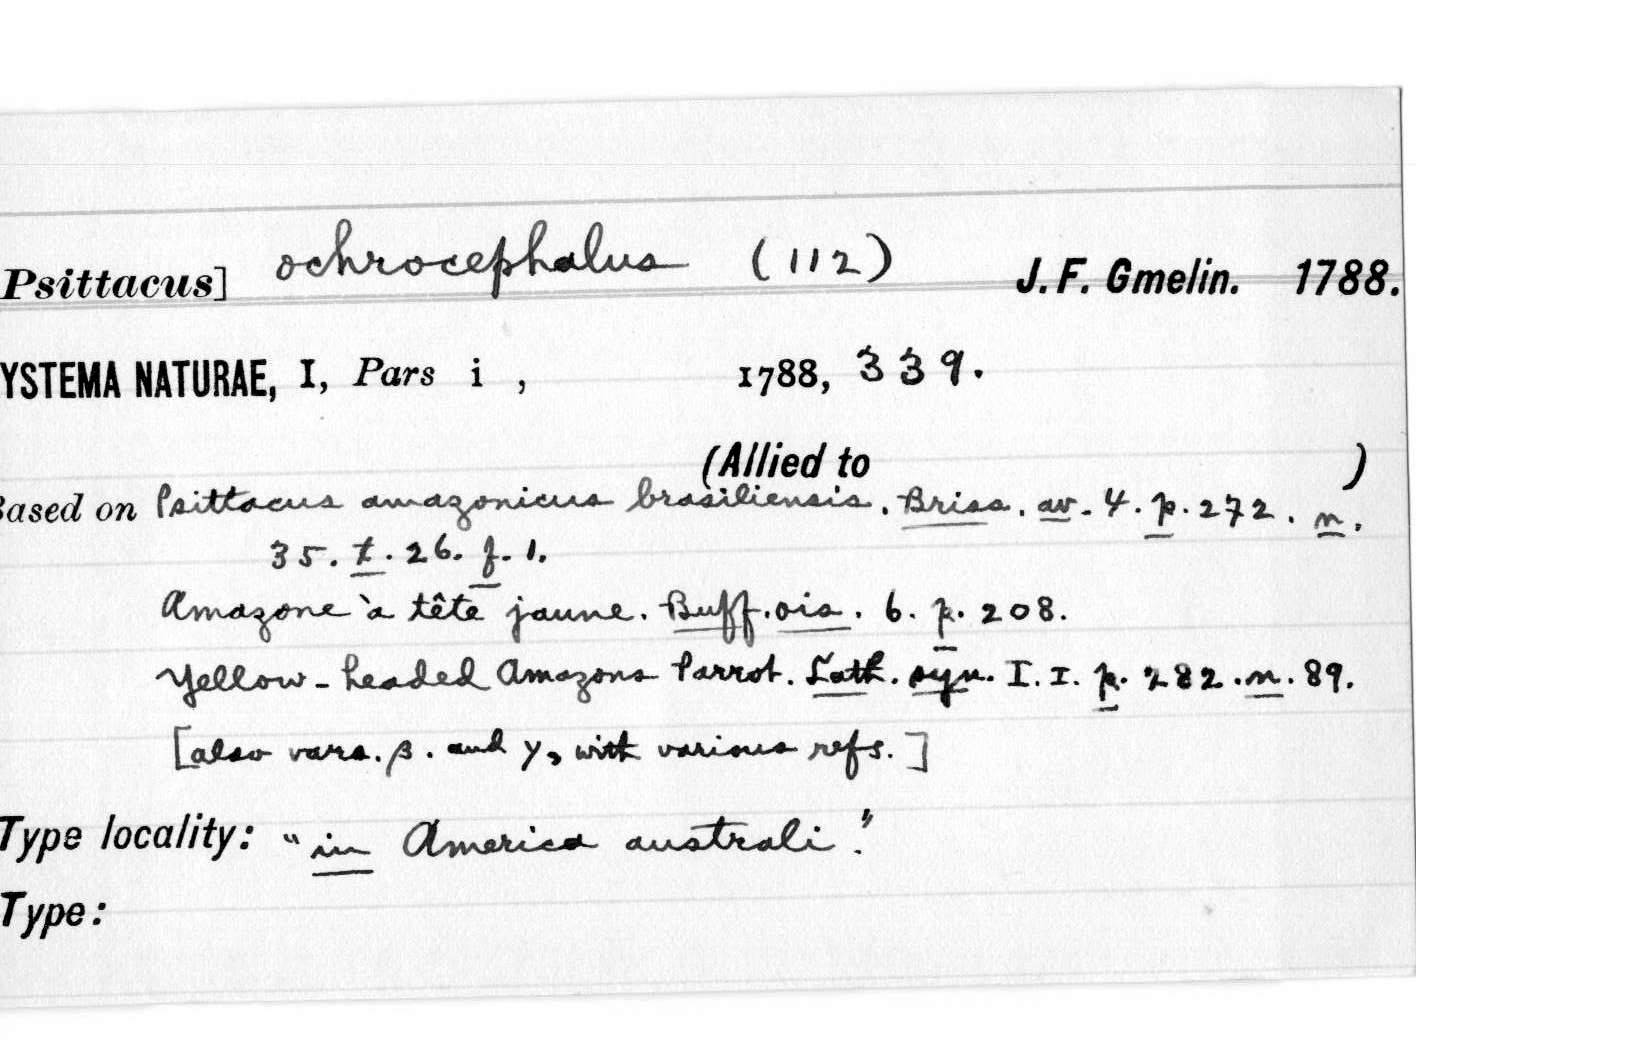 Psittacus] ochrocephalus (112) J. F. Gmelin. 1788.
YSTEMA NATURAE, I, Pars i , 1788, 339.
(Allied to )
Based on Psittacus amazonicus brasiliensis. Briss. av. 4. p. 272. n.
35. t. 26. f. 1.
Amazone à tête jaune. Buff. ois. 6. p. 208.
Yellow-headed Amazons Parrot. Lath. syn. I. I. p. 282. n. 89.
[also vars. β. and γ, with various refs.]
Type locality: "in America australi."
Type: